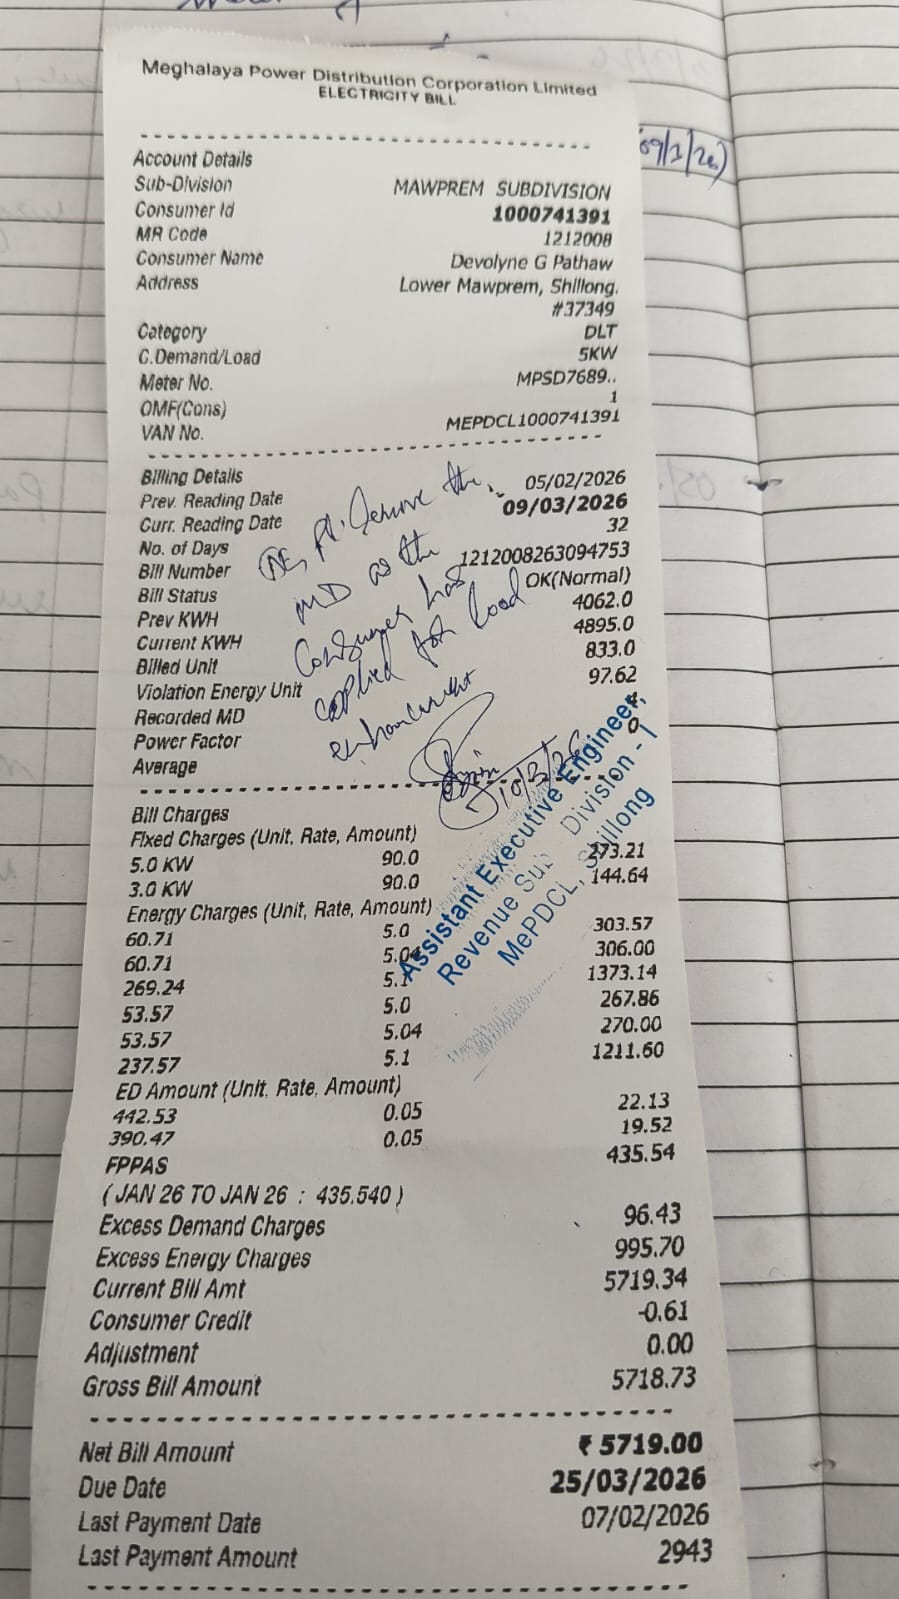 Meghalaya Power Distribution Corporation Limited
ELECTRICITY BILL
Account Details
Sub-Division MAWPREM SUBDIVISION
Consumer Id 1000741391
MR Code 1212008
Consumer Name Devolyne G Pathaw
Address Lower Mawprem, Shillong.
#37349
Category DLT
C.Demand/Load 5KW
Meter No. MPSD7689..
OMF(Cons) 1
VAN No. MEPDCL1000741391
Billing Details
Prev. Reading Date 05/02/2026
Curr. Reading Date 09/03/2026
No. of Days 32
Bill Number 1212008263094753
Bill Status OK(Normal)
Prev KWH 4062.0
Current KWH 4895.0
Billed Unit 833.0
Violation Energy Unit 97.62
Recorded MD
Power Factor 0
Average
the
MD as the
Consumer has
applied for load
enhancement
10/3/26
Assistant Executive Engineer,
Revenue Sub Division - I
MePDCL, Shillong
Bill Charges
Fixed Charges (Unit, Rate, Amount)
5.0 KW 90.0 273.21
3.0 KW 90.0 144.64
Energy Charges (Unit, Rate, Amount)
60.71 5.0 303.57
60.71 5.04 306.00
269.24 5.1 1373.14
53.57 5.0 267.86
53.57 5.04 270.00
237.57 5.1 1211.60
ED Amount (Unit, Rate, Amount)
442.53 0.05 22.13
390.47 0.05 19.52
FPPAS 435.54
( JAN 26 TO JAN 26 : 435.540 )
Excess Demand Charges 96.43
Excess Energy Charges 995.70
Current Bill Amt 5719.34
Consumer Credit -0.61
Adjustment 0.00
Gross Bill Amount 5718.73
Net Bill Amount ₹ 5719.00
Due Date 25/03/2026
Last Payment Date 07/02/2026
Last Payment Amount 2943